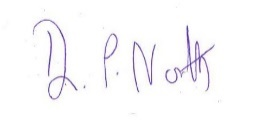 D. P. North